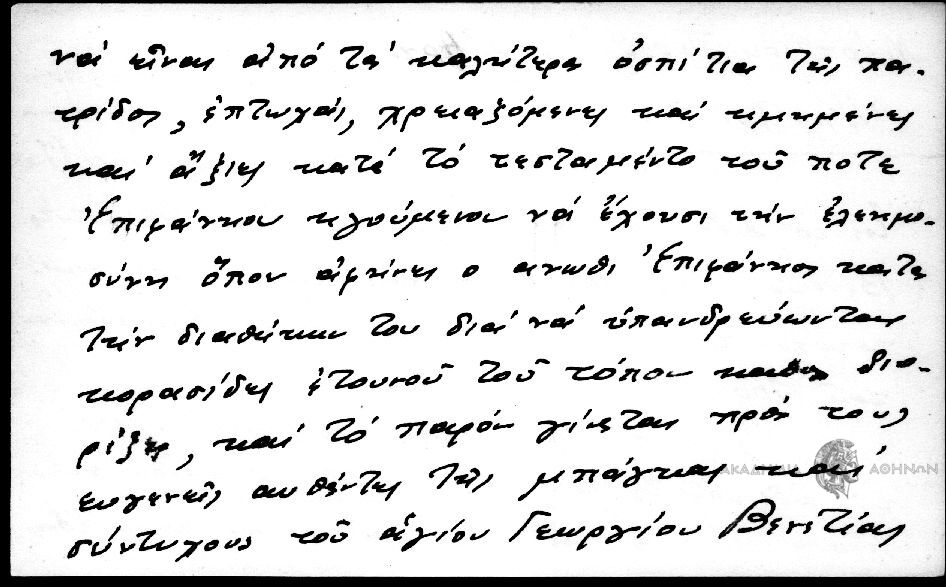 νά εἶναι ἀπό τά καλήτερα ὀσπίτια τῆς πα-
τρίδος, ἐπτωχάι, χρειαζόμενες καί τιμημένες
καί ἄξιες κατά τό τεσταμέντο τοῦ ποτε
Ἐπιφάνιου ηγούμενου νά ἔχουσι τήν ἐλεημο-
σύνη ὅπου ἀφίνει ο ανωθι Ἐπιφάνιος κατα
τήν διαθήκην του διά νά ὑπανδρεύωνται
κορασίδες ἐτουνοῦ τοῦ τόπου καθως διο-
ρίζει, καί τό παρόν γίνεται πρός τους
ευγενεῖς αυθέντες τῆς μπάγκας καί
σύντυχους τοῦ ἁγίου Γεωργίου Βενετίας
ΑΚΑΔΗΜΙΑ ΑΘΗΝΩΝ